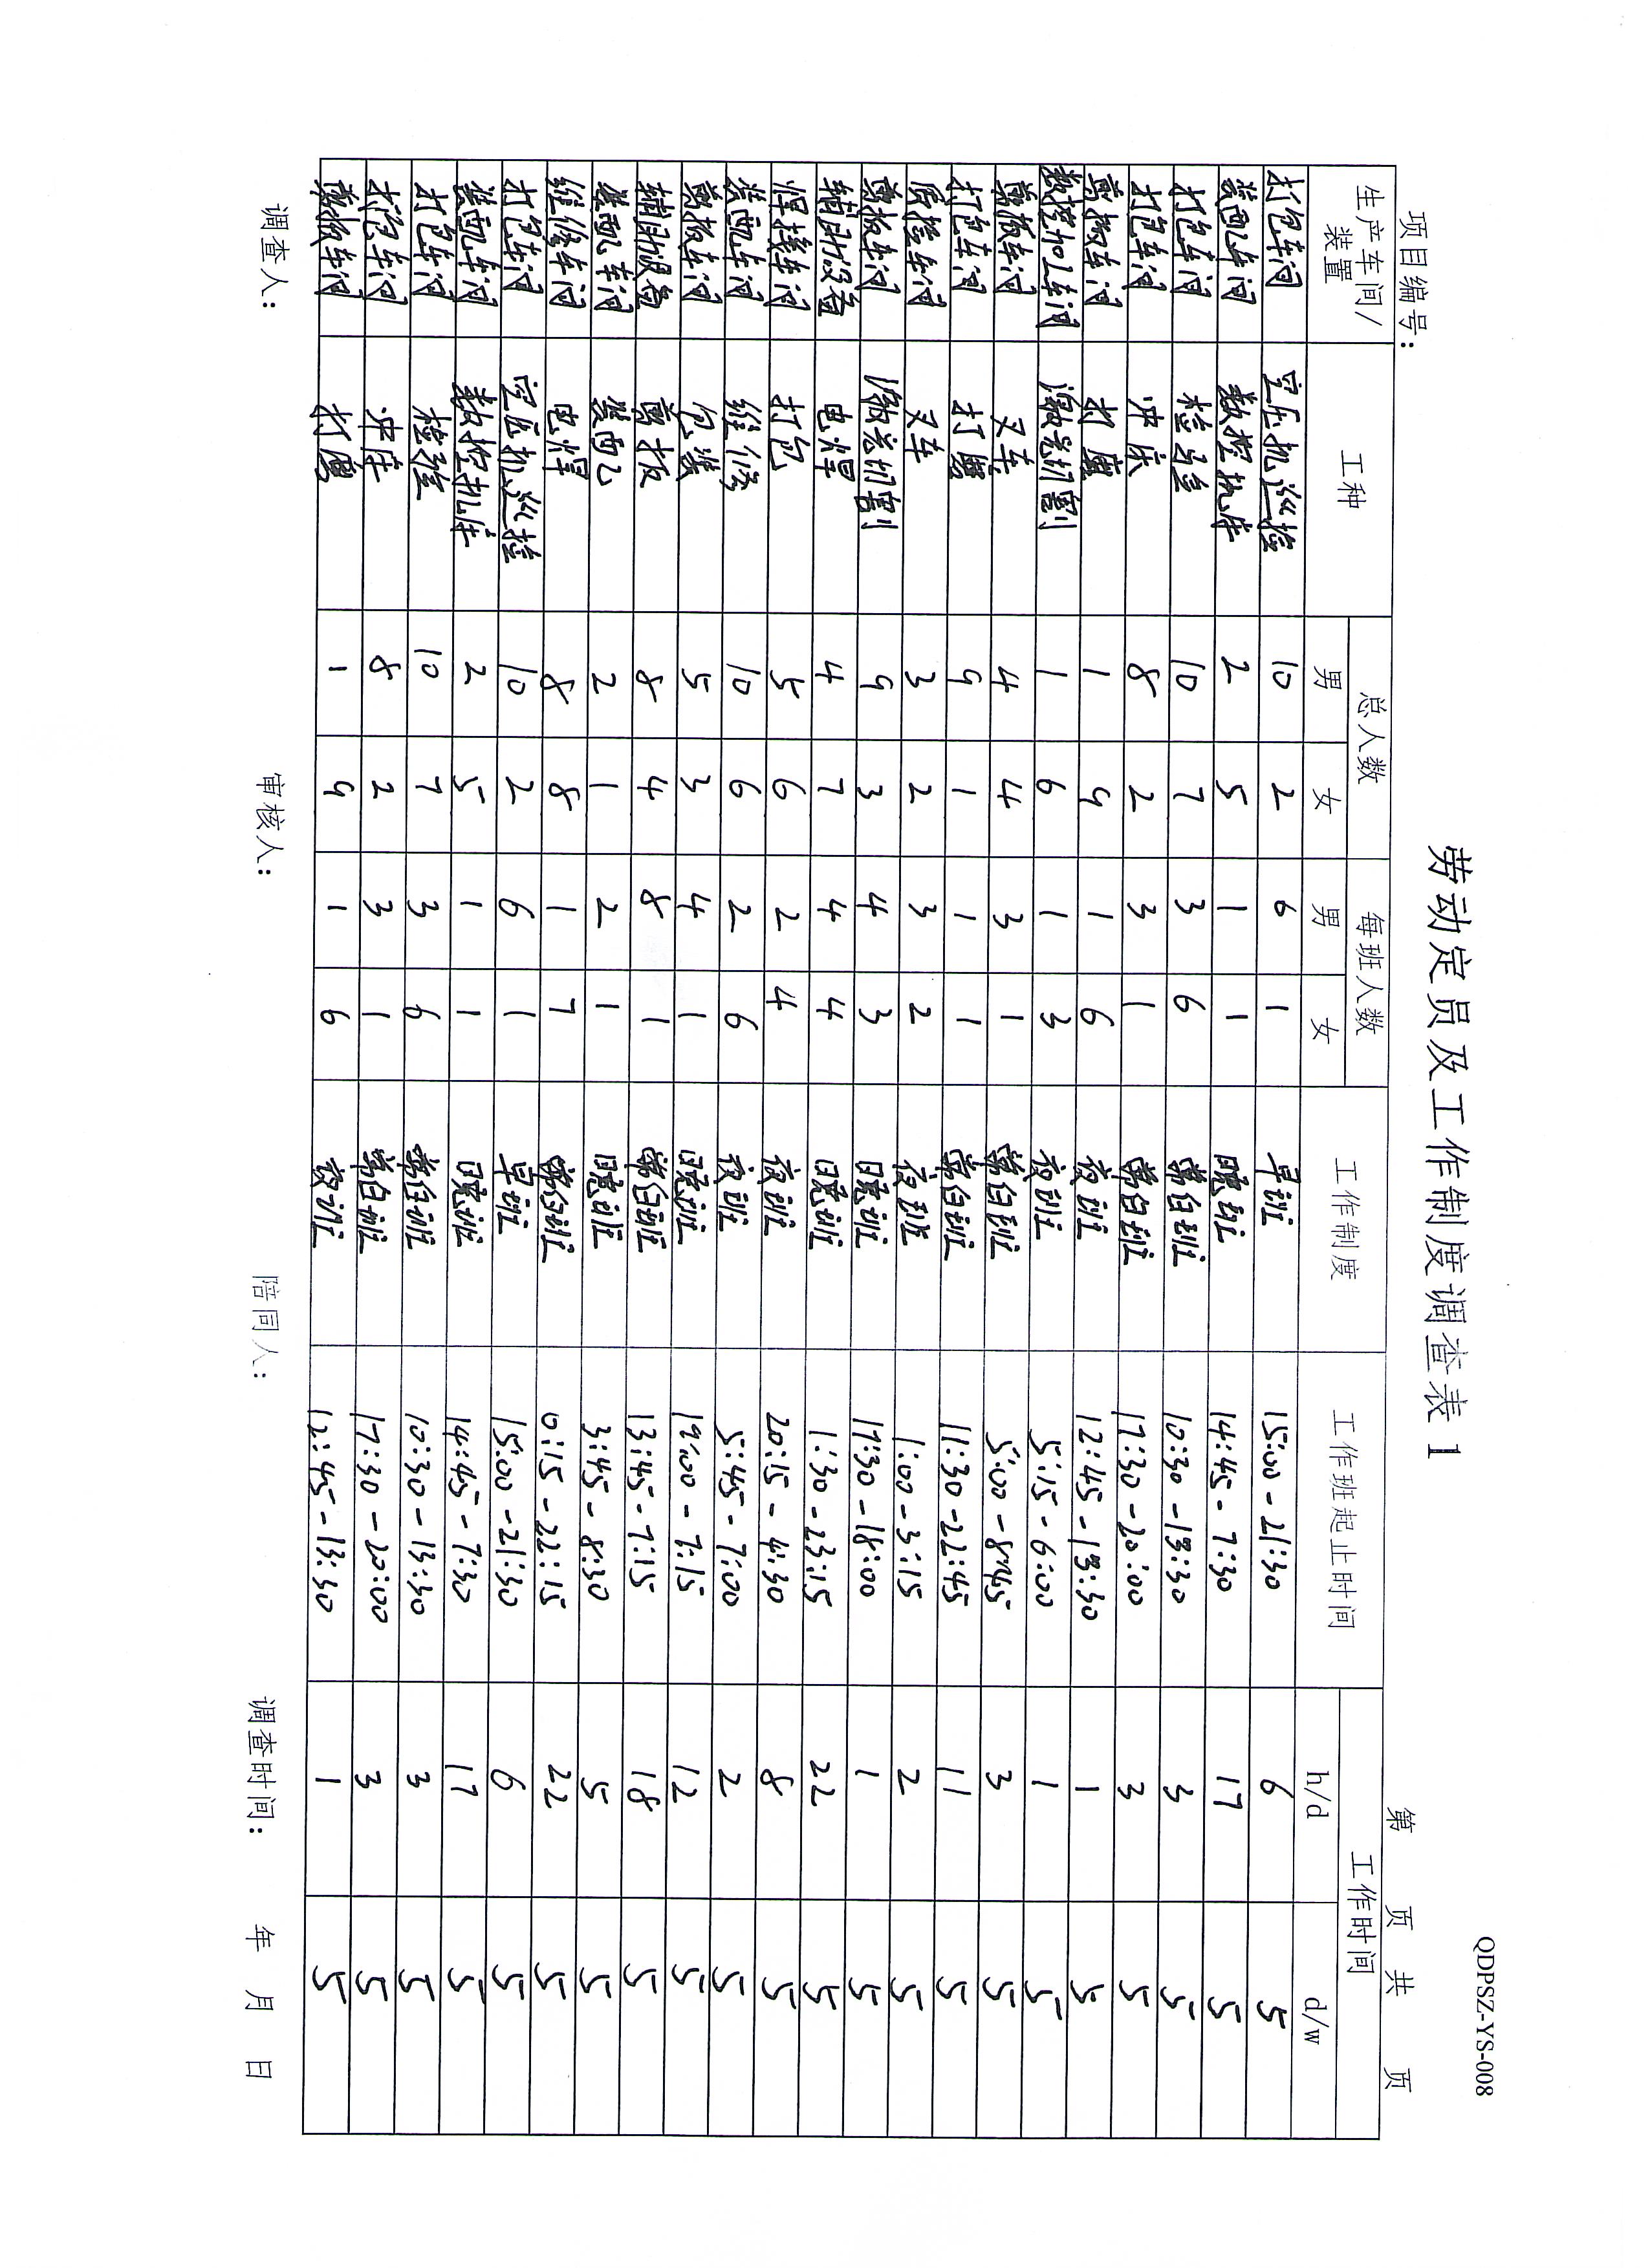 QDPSZ-YS-008
劳动定员及工作制度调查表1
项目编号： 第 页 共 页
生产车间/装置 工种 总人数 每班人数 工作制度 工作班起止时间 工作时间
男 女 男 女 h/d d/w
打包车间 空压机巡检 10 2 6 1 早班 15:00-21:30 6 5
装配车间 数控机床 2 5 1 1 晚班 14:45-7:30 17 5
打包车间 检验 10 7 3 6 常白班 10:30-13:30 3 5
打包车间 冲床 8 2 3 1 常白班 17:30-20:00 3 5
剪板车间 打磨 1 9 1 6 夜班 12:45-13:30 1 5
数控加工车间 激光切割 1 6 1 3 夜班 5:15-6:00 1 5
剪板车间 叉车 4 4 3 1 常白班 5:00-8:45 3 5
打包车间 打磨 9 1 1 1 常白班 11:30-22:45 11 5
质检车间 叉车 3 2 3 2 夜班 1:00-3:15 2 5
剪板车间 激光切割 9 3 4 3 晚班 17:30-18:00 1 5
辅助设备 电焊 4 7 4 4 晚班 1:30-23:15 22 5
焊接车间 打包 5 6 2 4 夜班 20:15-4:30 8 5
装配车间 维修 10 6 2 6 夜班 5:45-7:00 2 5
剪板车间 包装 5 3 4 1 晚班 19:00-7:15 12 5
辅助设备 剪板 8 4 8 1 常白班 13:45-7:15 18 5
装配车间 装配 2 1 2 1 晚班 3:45-8:30 5 5
维修车间 电焊 8 8 1 7 常白班 0:15-22:15 22 5
打包车间 空压机巡检 10 2 6 1 早班 15:00-21:30 6 5
装配车间 数控机床 2 5 1 1 晚班 14:45-7:30 17 5
打包车间 检验 10 7 3 6 常白班 10:30-13:30 3 5
打包车间 冲床 8 2 3 1 常白班 17:30-20:00 3 5
剪板车间 打磨 1 9 1 6 夜班 12:45-13:30 1 5
调查人： 审核人： 陪同人： 调查时间： 年 月 日